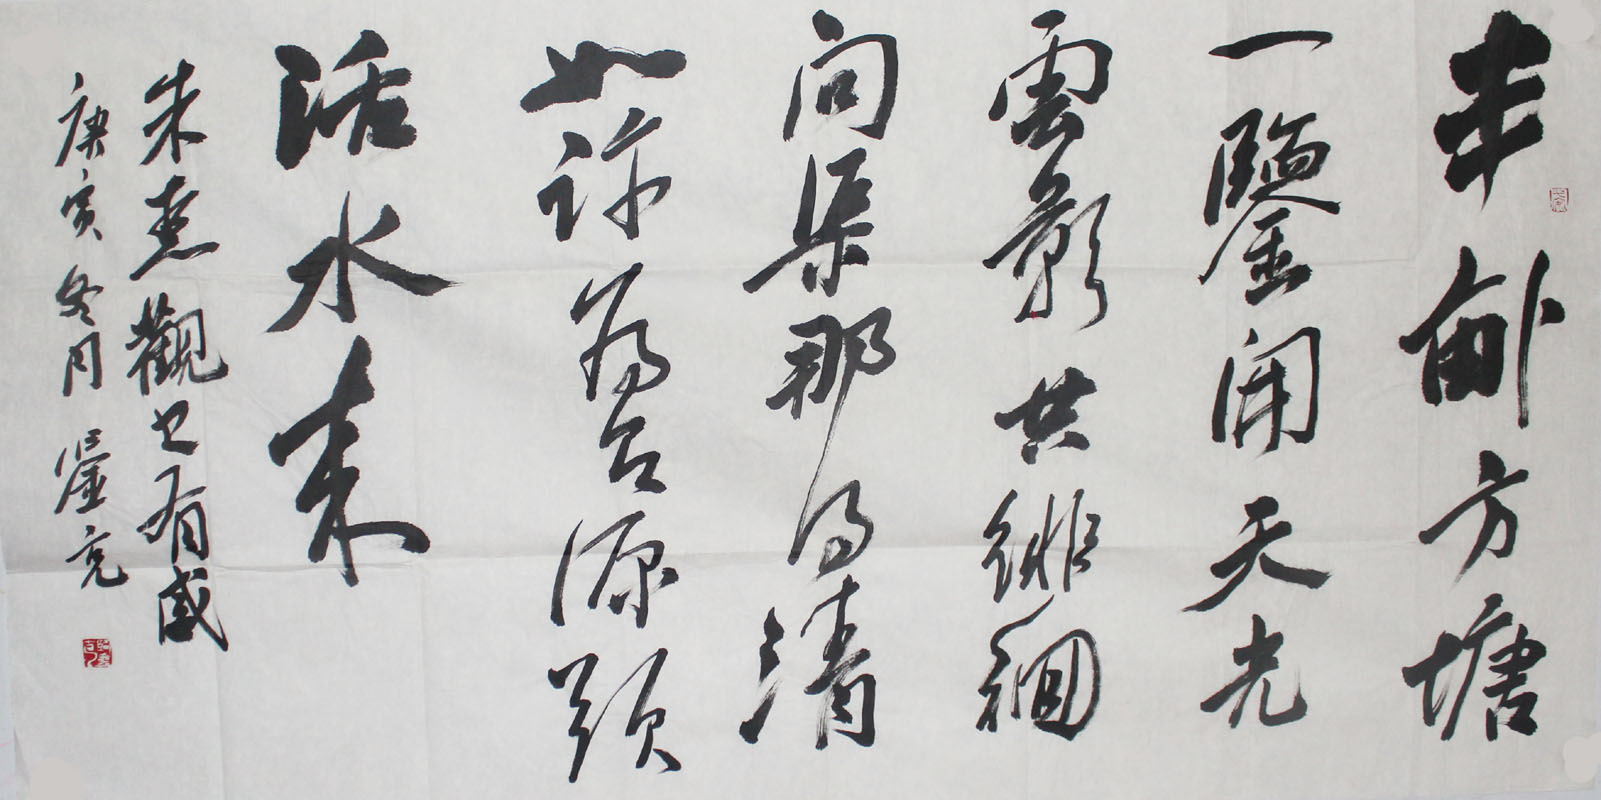 半畝方塘
一鑒開天光
雲影共徘徊
問渠那得清
如許為有源頭
活水来
朱熹觀书有感
庚寅冬月 亮